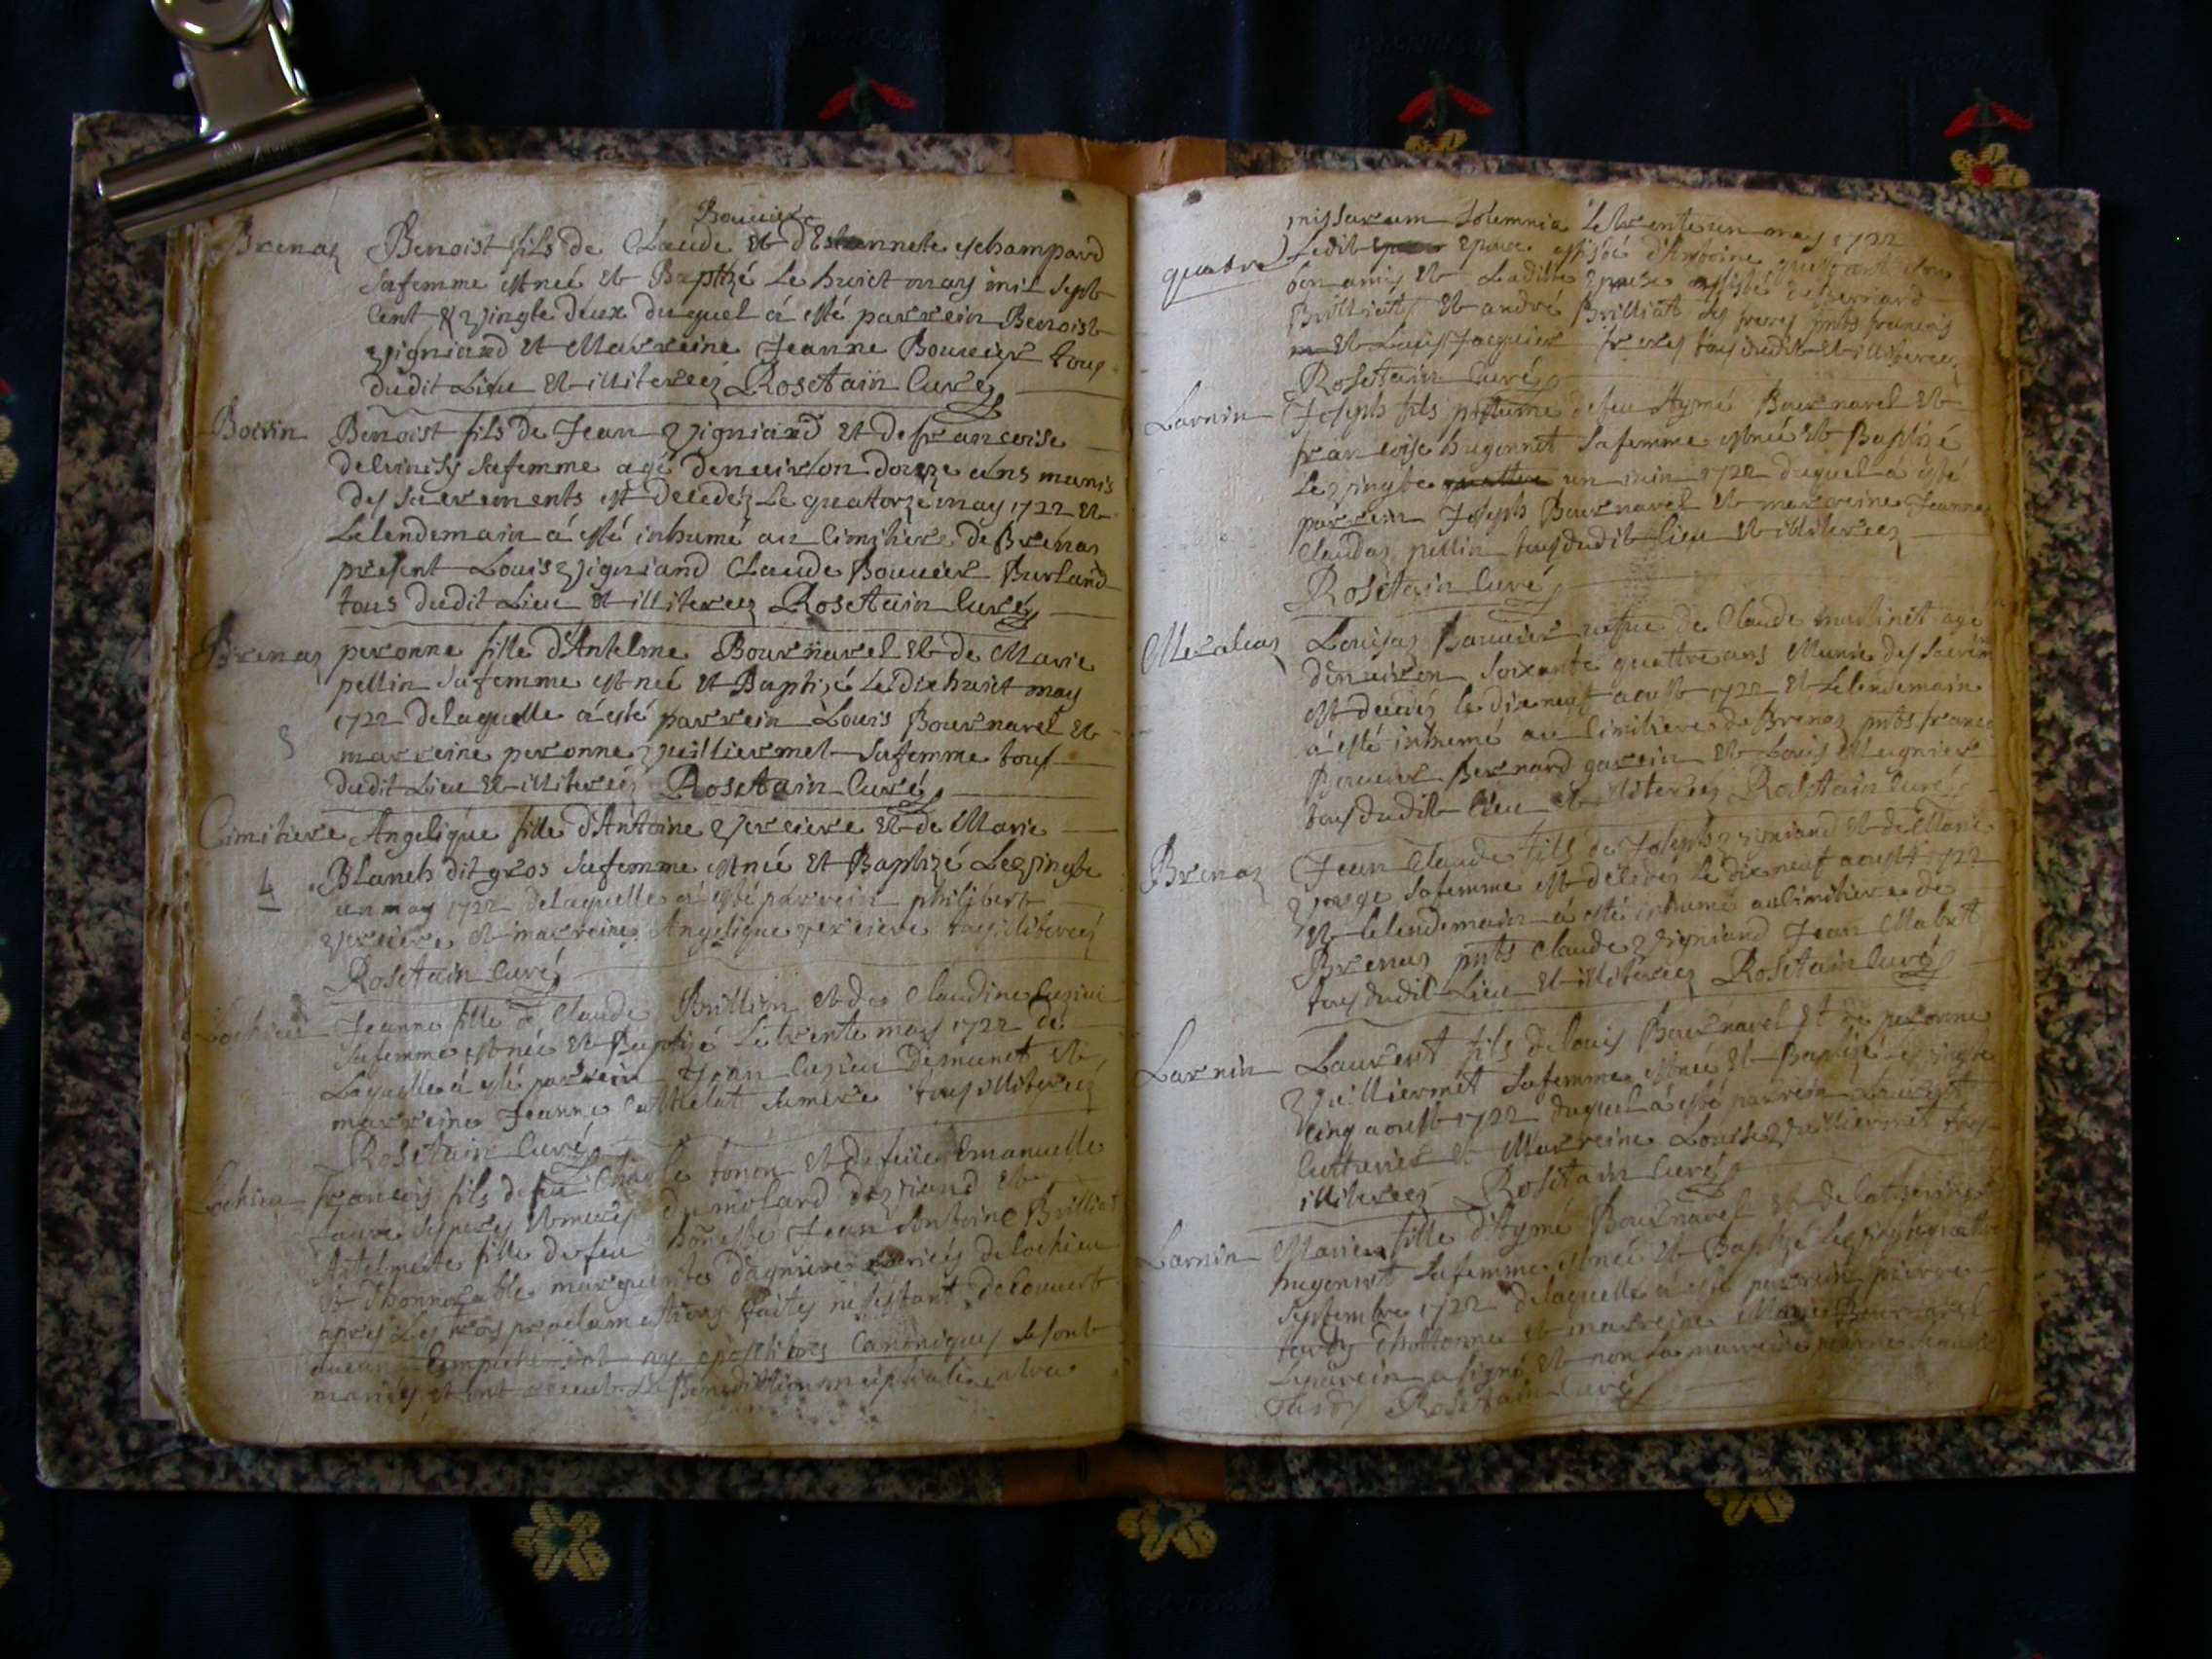 Bouuier
Brenaz Benoist fils de Claude et d'Estiennete eschampard
safemme est neé et Baptizé Le huict may mil sept
Cent & vingte deux duquel á esté parrein Benoist
vigniand et Marreine Jeanne Bouuier tous
dudit Lieu et illitereez Rosetain Curéz
Boivin Benoist fils de Jean vigniand et de francoise
safemme agé denuiron douze ans munis
des sacrements est decedéz Le quatorze may 1722 et
Lelendemain á esté inhumé au Cimitiere de Brenaz
present Louis vigniand Claude Bouuier Burland
tous dudit Lieu et illitereez Rosetain Curéz
Brenaz peronne fille d'Antelme Bournavel et de Marie
pellin safemme est neé et Baptizé Le dix huict may
1722 delaquelle á esté parrein Louis Bournavel et
marreine peronne vuilliermet safemme tous
dudit Lieu et illitereéz Rosetain Curéz
Cimitiere Angelique fille d'Antoine verciere et de Marie
4 Blanch dit gros safemme est neé et Baptizé Le vingte
un may 1722 delaquelle á esté parrein philibert
verciere et marreine Angelique verciere tous illitereéz
Rosetain Curéz
Lochieu Jeanne fille de Claude Brillion et de Claudine
safemme est neé et Baptizé Le trente may 1722 de
Laquelle á esté parrein Jean et
marreine Jeanne samere tous illitereéz
Rosetain Curéz
Lochieu francois fils de feu Charle tonon et de feüe Emanuelle
dumolard et
Antelmette fille de feu honneste Jean Antoine Brilliat
et d'honnorable marguerite de Lochieu
apres Les trois proclamations faites ne s'estant decouvert
aucun Empechement ny oposition Canoniques se sont
mariéz et ont receut La Benediction nuptiale intra
missarum solemnia Le trente un may 1722
quatre Ledit epoux assisté d'Antoine
bon amis et Ladite epouse assisté de Bernard
Brilliat et andré Brilliat ses freres pnts francois
et Louis Jacquier freres tous dudit et illitereez
Rosetain Curéz
Larnin Joseph fils postume defeu Aymé Bournavel et
francoise hugonnet safemme est neé et Baptizé
Le vingte un iuin 1722 duquel á esté
parrein Joseph Bournavel et marreine Jeanne
Claudaz pellin tous dudit Lieu et illitereez
Rosetain Curéz
Meraleaz Louisaz Bouuier vefue de Claude martinet age
denuiron soixante quattre ans Munie des sacrem
est decedéz le dix neuf aoust 1722 et Lelendemain
á esté inhumé au Cimitiere de Brenaz pnts francois
Bouuier Bernard garein et Louis Mugnier
tous dudit Lieu et illitereéz Rosetain Curéz
Brenaz Jean Claude fils de Joseph vigniand et de Marie
safemme est decedéz Le dix neuf aoust 1722
et Lelendemain á esté inhumé au Cimitiere de
Brenaz pnts Claude vigniand Jean Mabut
tous dudit Lieu et illitereez Rosetain Curéz
Larnin Laurent fils de Louis Bournavel et de peronne
vuilliermet safemme est neé et Baptizé Le vingte
cinq aoust 1722 duquel á esté parrein Laurent
et Marreine Louise vuilliermet tous
illitereez Rosetain Curéz
Larnin Marie fille d'Aymé Bournavel et de Catherine
hugonnet safemme est neé et Baptizé Le vingte quattre
septembre 1722 delaquelle á esté parrein pierre
tardy et marreine Marie Bournavel
Leparrein a signé et non La marreine
Tardy Rosetain Curéz